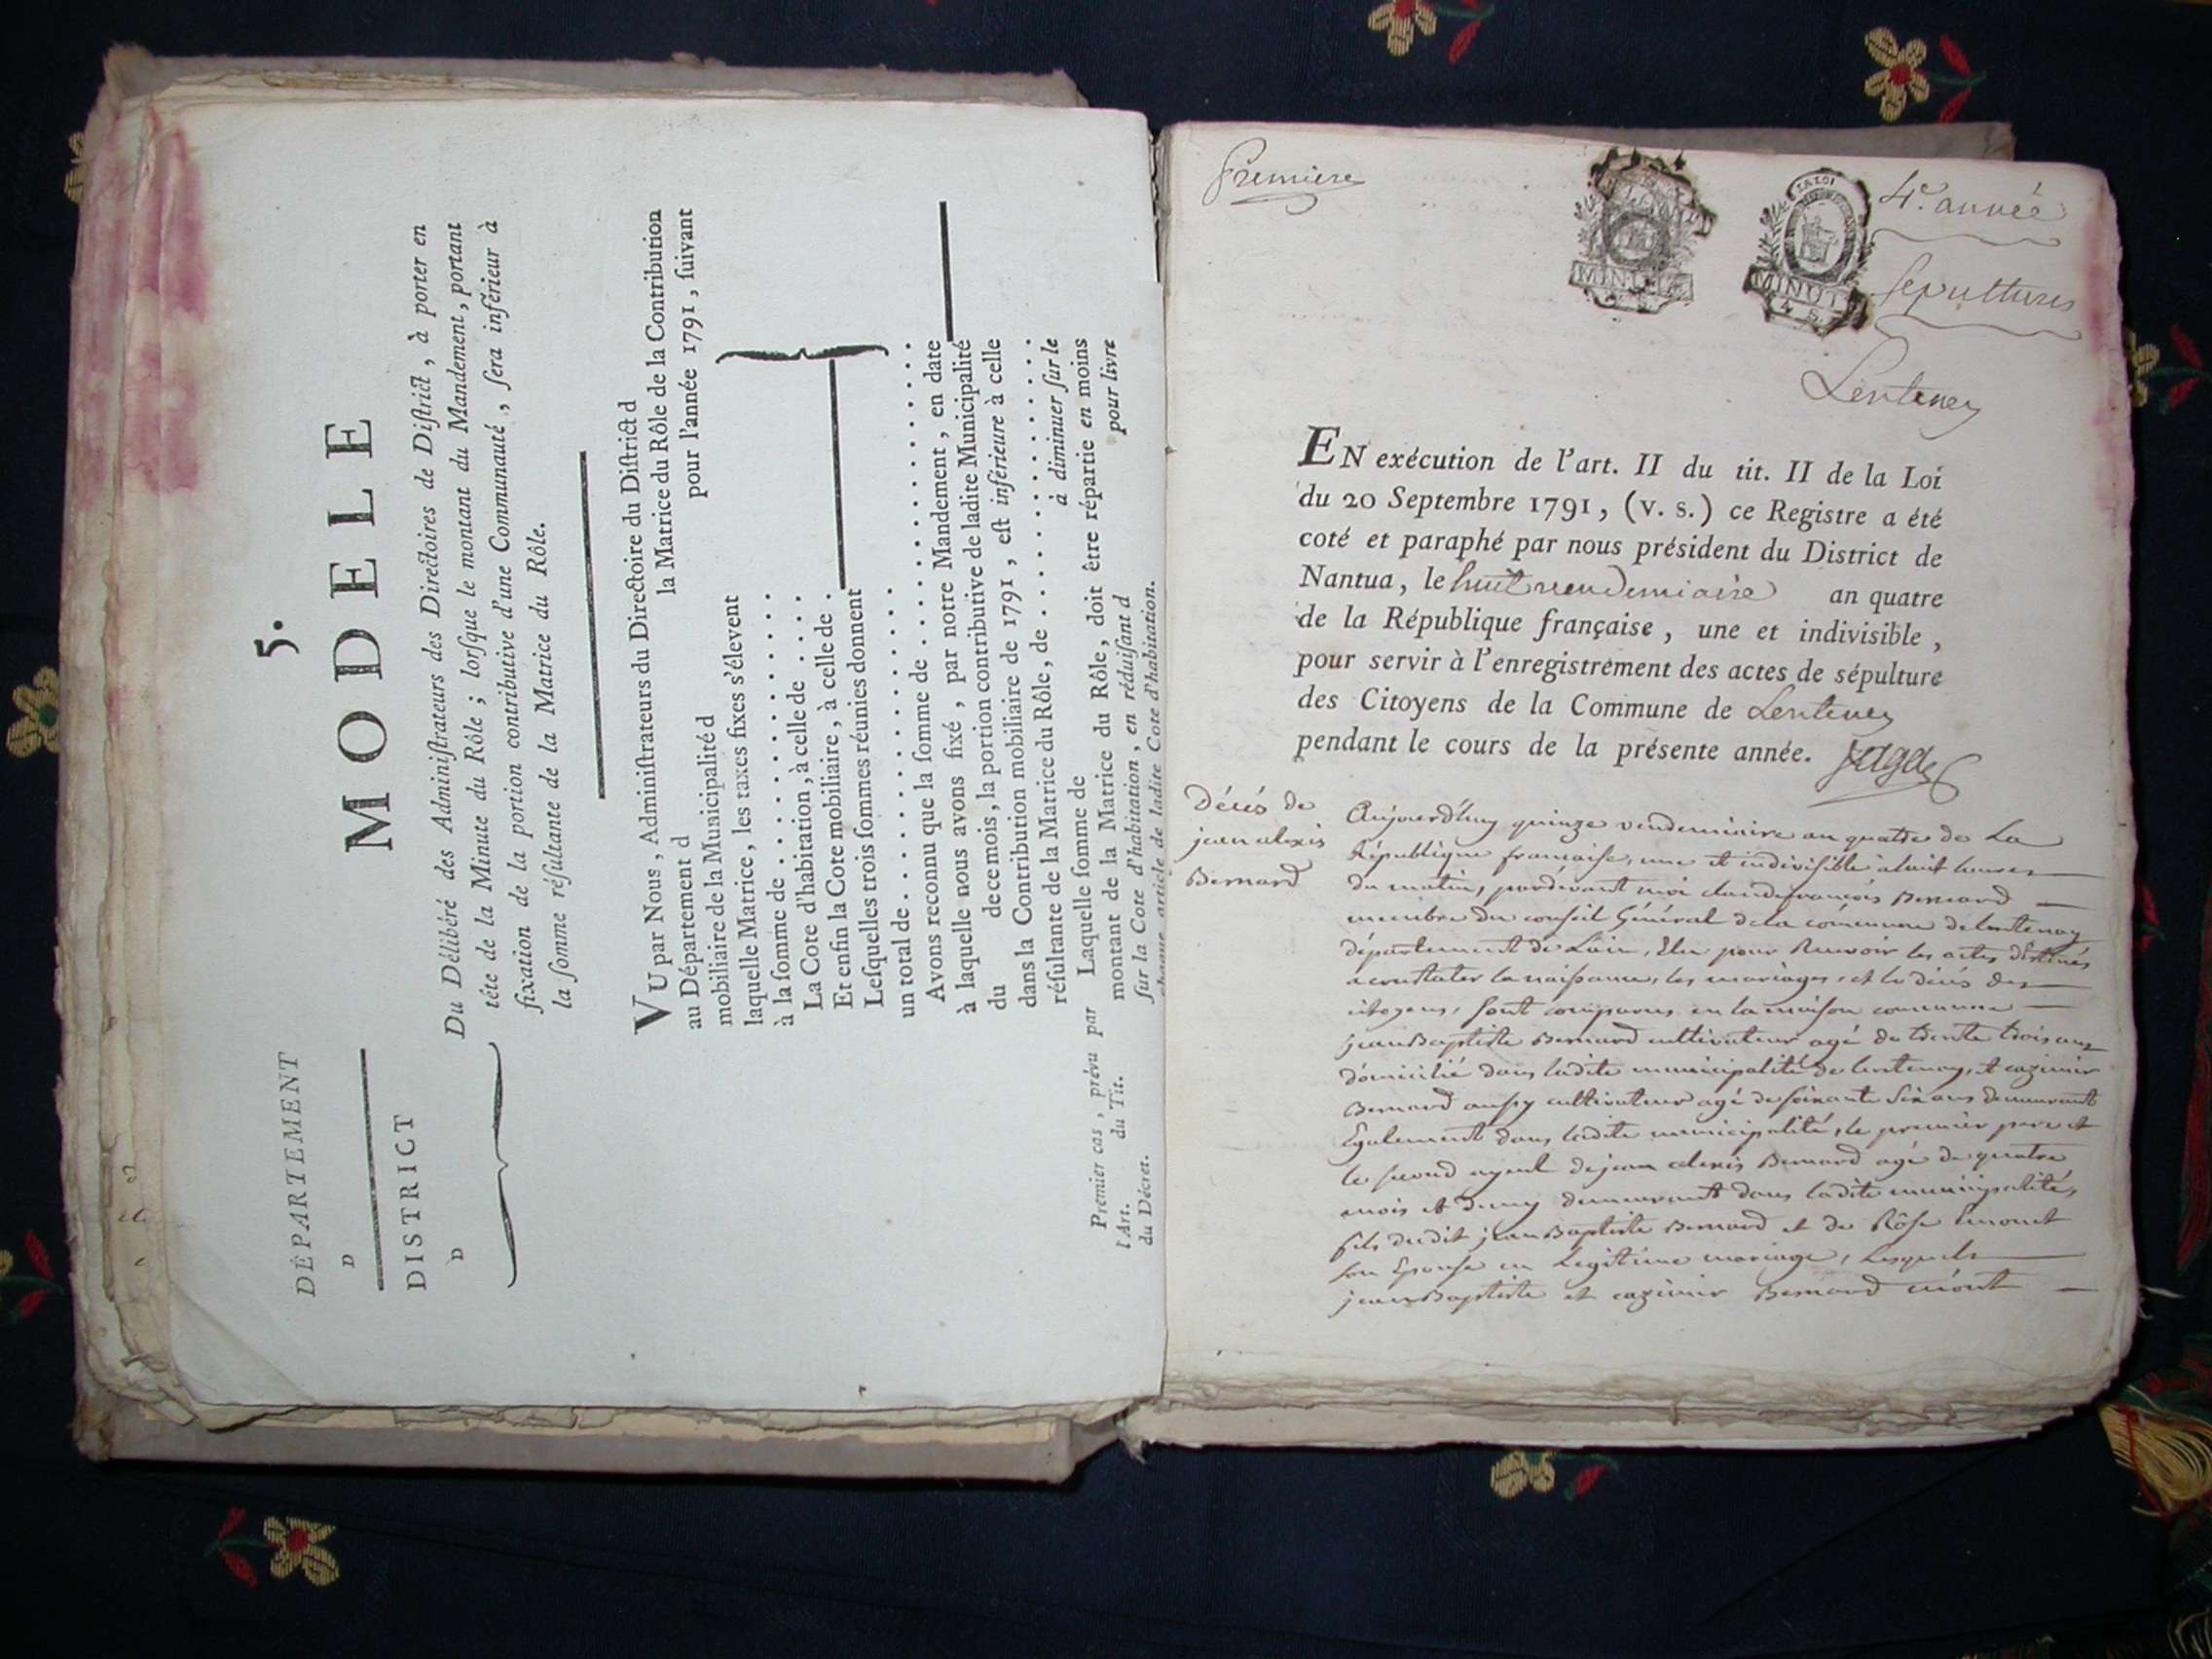 5.
MODELE
DÉPARTEMENT
D
DISTRICT
D
Du Délibéré des Adminiſtrateurs des Directoires de Diſtrict, à porter en
tête de la Minute du Rôle ; lorſque le montant du Mandement, portant
fixation de la portion contributive d'une Communauté, ſera inférieur à
la ſomme réſultante de la Matrice du Rôle.
VU par Nous, Adminiſtrateurs du Directoire du Diſtrict d
au Département d la Matrice du Rôle de la Contribution
mobiliaire de la Municipalité d pour l'année 1791, ſuivant
laquelle Matrice, les taxes fixes s'élevent
à la ſomme de . . . . . . . . . . .
La Cote d'habitation, à celle de . . . .
Et enfin la Cote mobiliaire, à celle de .
Leſquelles trois ſommes réunies donnent
un total de . . . . . . . . . . . . .
Avons reconnu que la ſomme de . . . . . . . . . . . . . . .
à laquelle nous avons fixé, par notre Mandement, en date
du de ce mois, la portion contributive de ladite Municipalité
dans la Contribution mobiliaire de 1791, eſt inférieure à celle
réſultante de la Matrice du Rôle, de . . . . . . . . . . . . .
Premier cas, prévu par
l'Art. du Tit.
du Décret.
Laquelle ſomme de à diminuer ſur le
montant de la Matrice du Rôle, doit être répartie en moins
ſur la Cote d'habitation, en réduiſant d pour livre
chaque article de ladite Cote d'habitation.
Premiere
LA LOI
MINUTE
4 S.
MINUTE
4e. année
sepultures
Lentenay
EN exécution de l'art. II du tit. II de la Loi
du 20 Septembre 1791, (v. s.) ce Registre a été
coté et paraphé par nous président du District de
Nantua, le huit vendemiaire an quatre
de la République française, une et indivisible,
pour servir à l'enregistrement des actes de sépulture
des Citoyens de la Commune de Lentenay
pendant le cours de la présente année.
Décés de
jean alexis
Bernard
Aujourd'huy quinze vendemiaire an quatre de La
République francaise, une et indivisible à huit heures
du matin, pardevant moi claude françois Bernard
membre du conseil Général de la commune de lentenay
département de Lain, Elu pour Recevoir les actes destinés
a constater la naissance, les mariages, et le décés des
citoyens, sont comparus en la maison commune
jean Baptiste Bernard cultivateur agé de trente trois ans
domicilié dans ladite municipalité de lentenay, et cazimir
Bernard aussy cultivateur agé de soixante six ans demeurant
Egalement dans ladite municipalité, le premier pere et
le second ayeul de jean alexis Bernard agé de quatre
mois et demy demeurant dans ladite municipalité,
fils dudit jean Baptiste Bernard et de Rôse
son Epouse en Legitime mariage, Lesquels
jean Baptiste et cazimir Bernard m'ont